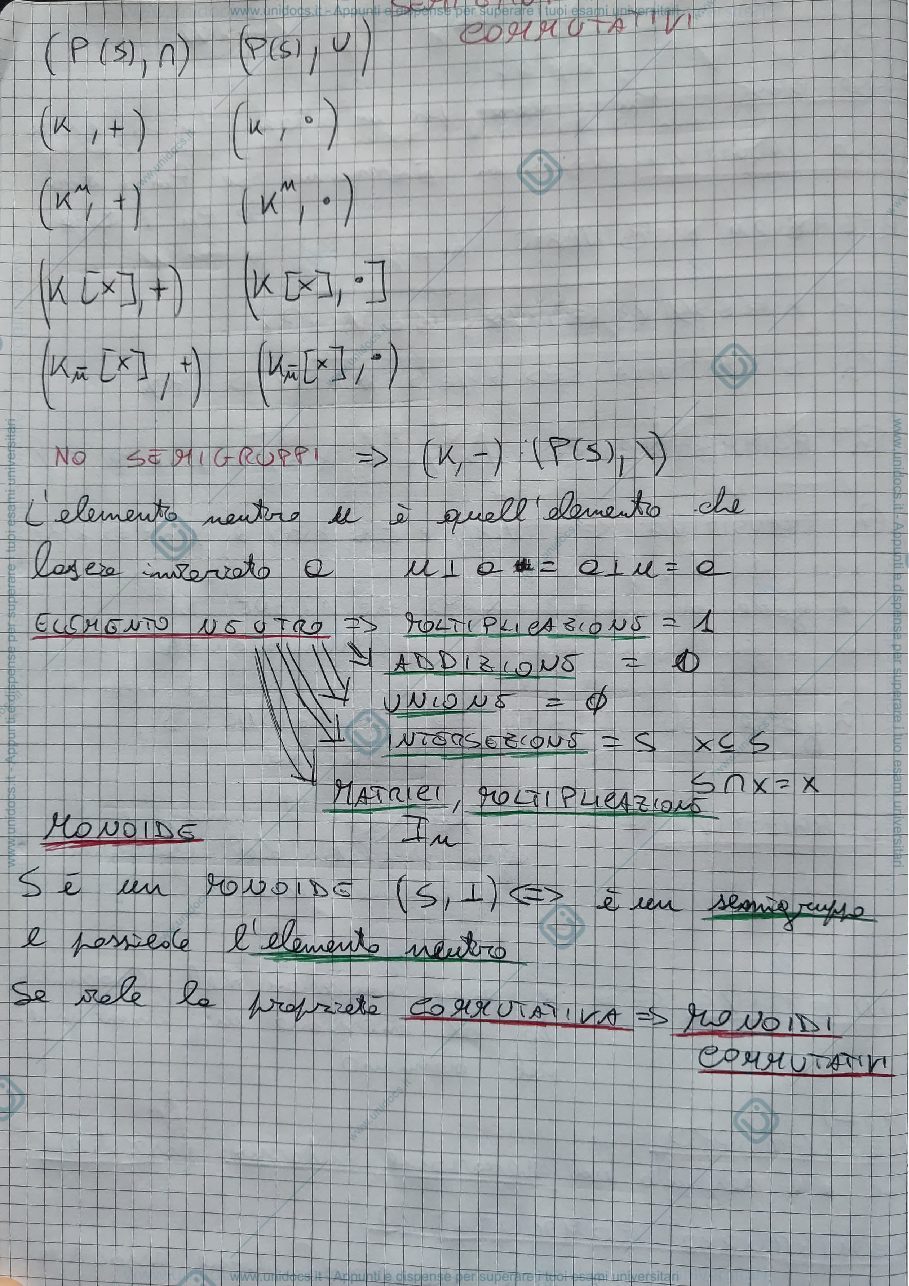 www.unidocs.it - Appunti e dispense per superare i tuoi esami universitari
COMMUTATIVI
(P(S), ∩) (P(S), ∪)
(K, +) (K, ·)
(Kⁿ, +) (Kⁿ, ·)
(K[x], +) (K[x], ·]
(Kn̄[x], +) (Kn̄[x], ·)
NO SEMIGRUPPI => (K, -) (P(S), \)
L'elemento neutro u è quell'elemento che
lascia invariato a u⊥a = a⊥u = a
ELEMENTO NEUTRO => MOLTIPLICAZIONE = 1
ADDIZIONE = 0
UNIONE = ∅
INTERSEZIONE = S X⊆S
S∩X = X
MATRICI, MOLTIPLICAZIONE
In
MONOIDE
S è un MONOIDE (S, ⊥) <=> è un semigruppo
e possiede l'elemento neutro
Se vale la proprietà COMMUTATIVA => MONOIDI
COMMUTATIVI
www.unidocs.it - Appunti e dispense per superare i tuoi esami universitari